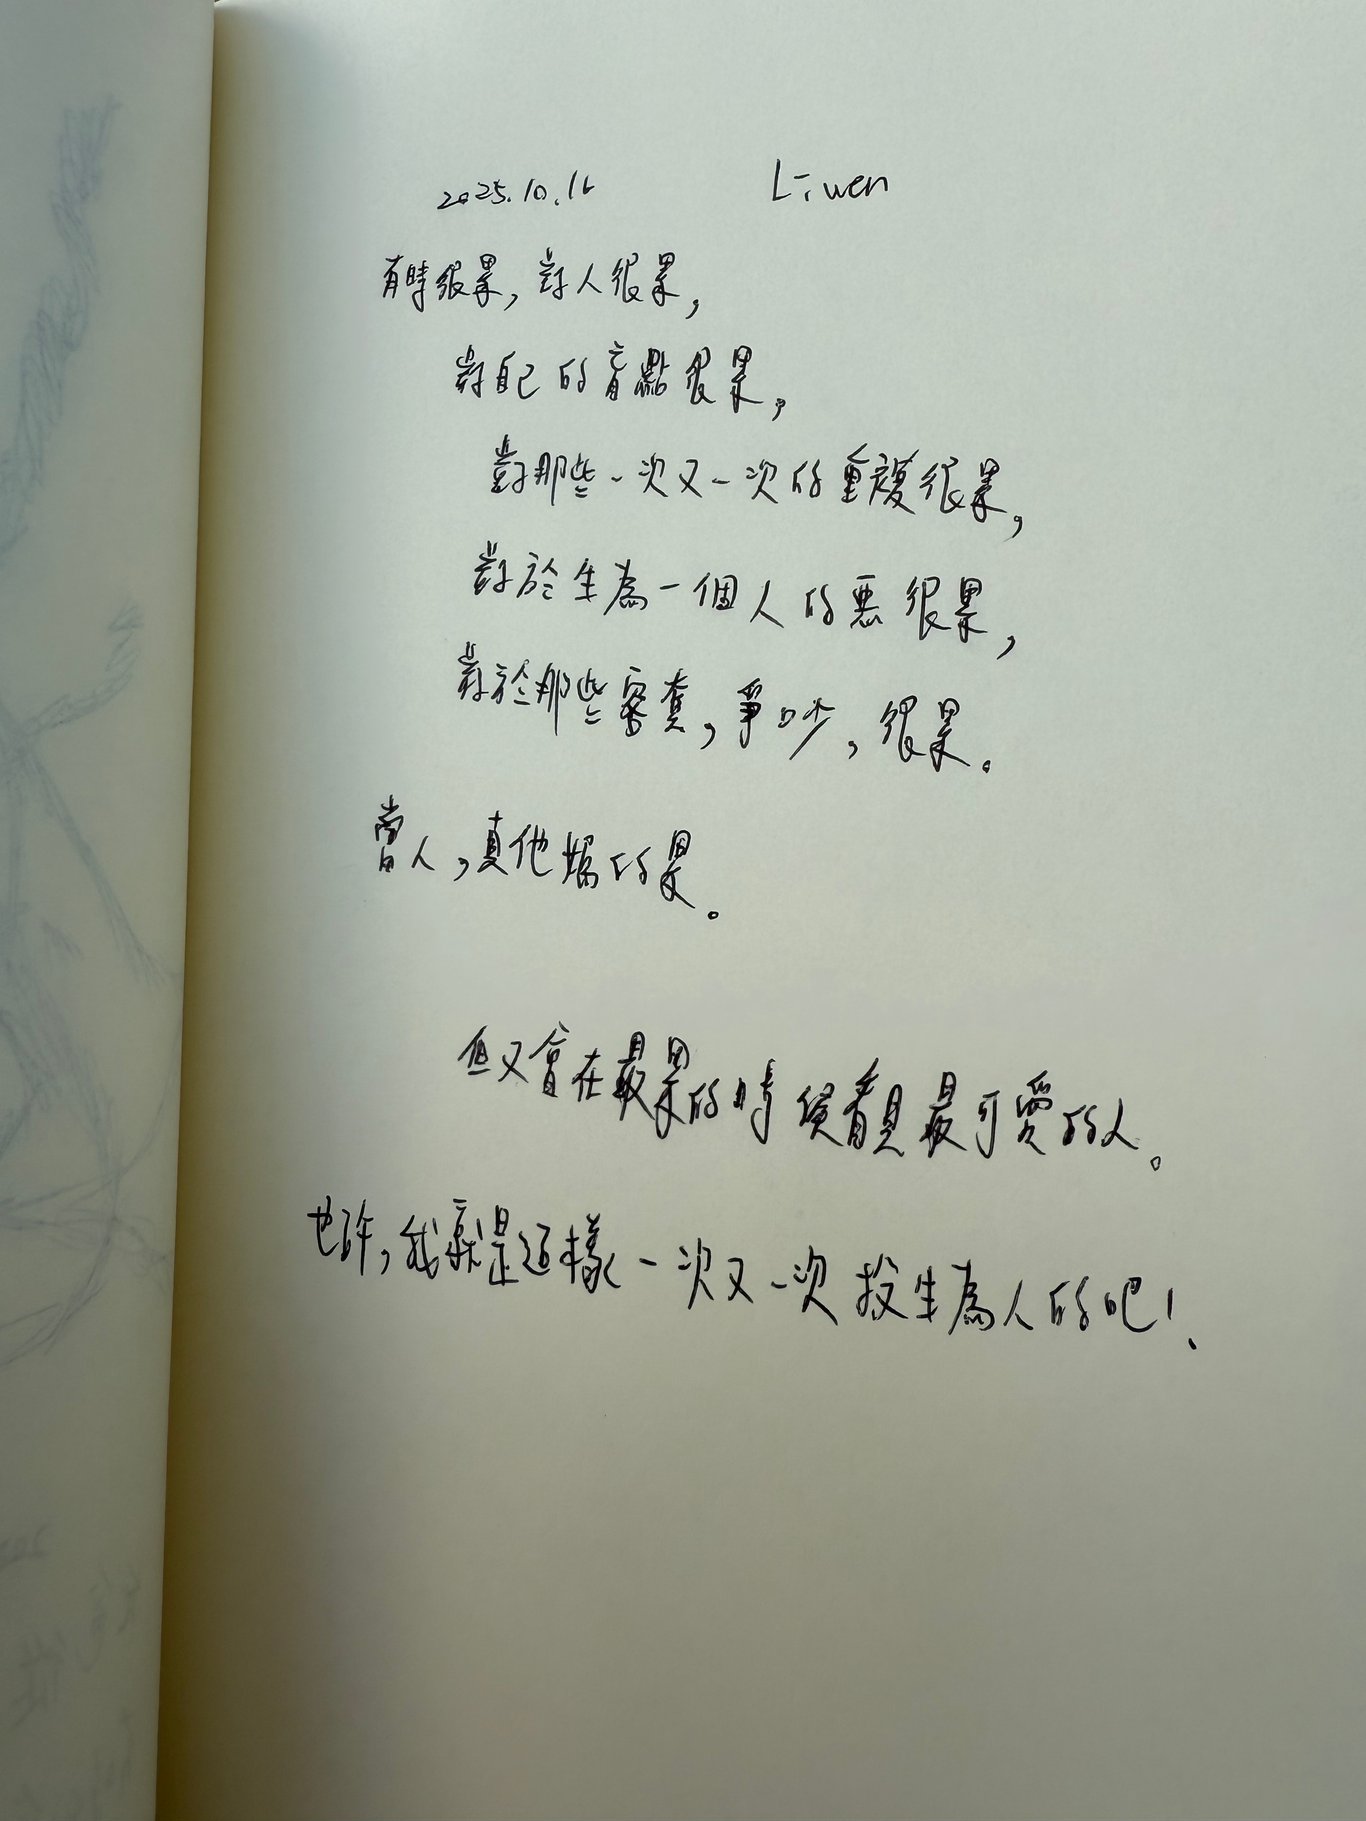 2025.10.16 Liwen
有時很累，對人很累，
對自己的盲點很累，
對那些一次又一次的重複很累，
對於生為一個人的惡很累，
對於那些審查，爭吵，很累。
當人，真他媽的累。
但又會在最累的時候看見最可愛的人。
也許，我就是這樣一次又一次投生為人的吧！